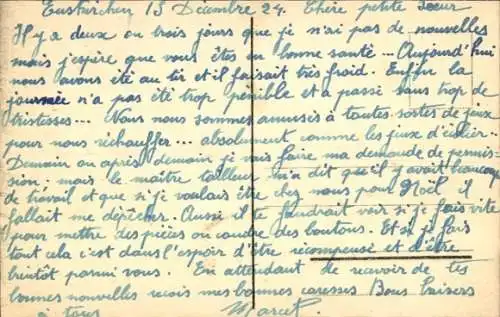 Euskirchen 13 Décembre 24. Chère petite soeur
Il y a deux ou trois jours que je n'ai pas de nouvelles
mais j'espère que vous êtes en bonne santé... Aujourd'hui
nous avons été au tir et il faisait très froid. Enfin la
journée n'a pas été trop pénible et a passé sans trop de
tristesses... Nous nous sommes amusés à toutes sortes de jeux
pour nous réchauffer... absolument comme les jeux d'écolier.
Demain ou après demain je vais faire ma demande de permis-
sion. mais le maître tailleur m'a dit qu'il y avait beaucoup
de travail et que si je voulais être chez nous pour Noël il
fallait me dépêcher. Aussi il te faudrait voir si je fais vite
pour mettre des pièces ou coudre des boutons. Et si je fais
tout cela c'est dans l'espoir d'être récompensé et d'être
bientôt parmi vous. En attendant de recevoir de tes
bonnes nouvelles reçois mes bonnes caresses Bons baisers
à tous Marcel.